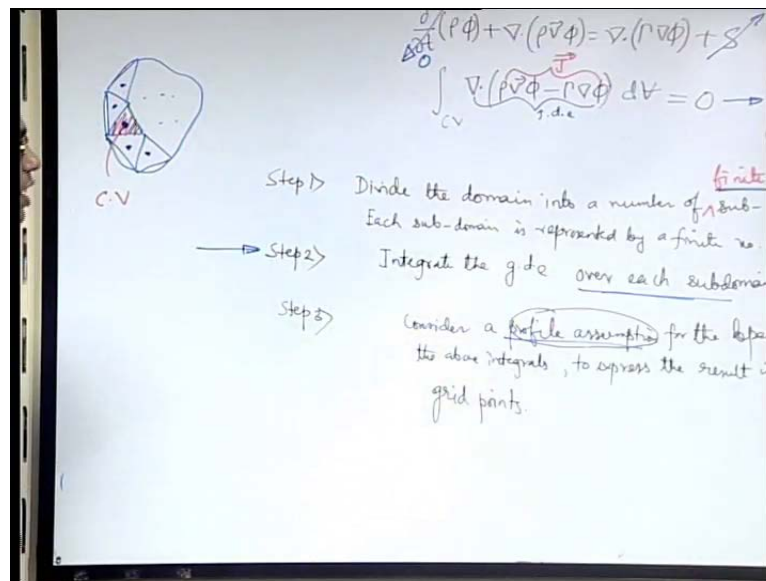 ∂/∂t (ρφ) + ∇·(ρv⃗φ) = ∇·(Γ∇φ) + S
0
J⃗
∫ ∇·(ρv⃗φ − Γ∇φ) dV = 0 →
CV
g.d.e
C.V
finite
Step 1> Divide the domain into a number of ^ sub-
Each sub-domain is represented by a finite no.
Step 2> Integrate the g.d.e over each subdomain
Step 3> Consider a profile assumption for the
the above integrals, to express the result
grid points.